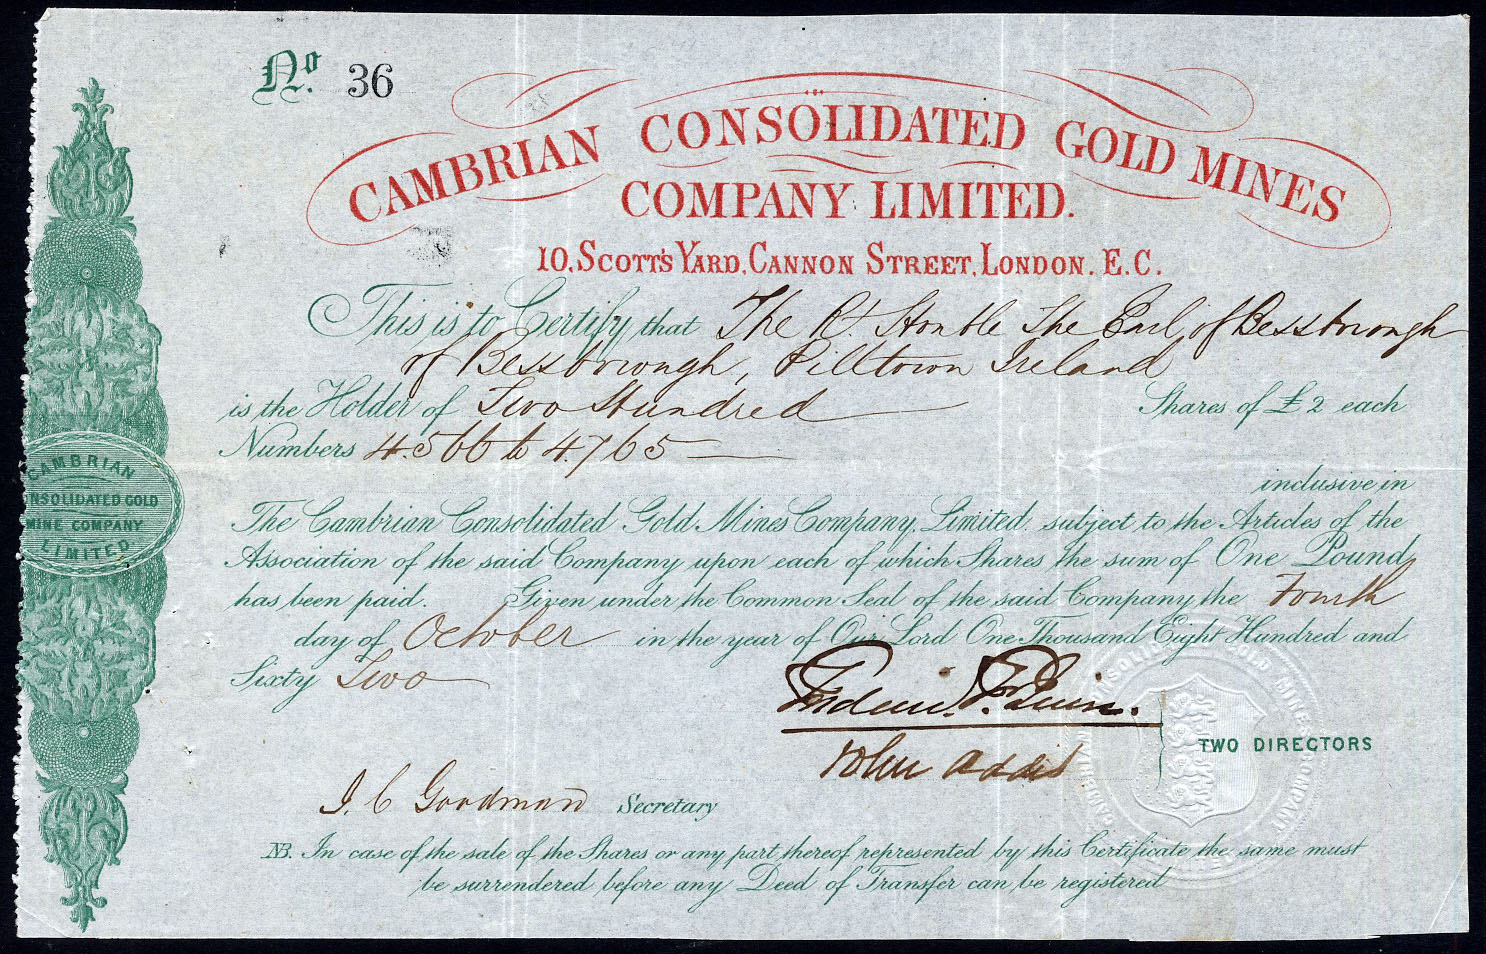 No. 36
CAMBRIAN CONSOLIDATED GOLD MINES
COMPANY LIMITED.
10, SCOTT'S YARD, CANNON STREET, LONDON. E.C.
This is to Certify that The Rt. Honble The Earl of Bessborough
of Bessborough, Pilltown Ireland
is the Holder of Two Hundred Shares of £2 each
Numbers 4.566 to 4.765
inclusive in
The Cambrian Consolidated Gold Mines Company, Limited. subject to the Articles of the
Association of the said Company upon each of which Shares the sum of One Pound
has been paid. Given under the Common Seal of the said Company the Fourth
day of October in the year of Our Lord One Thousand Eight Hundred and
Sixty Two
John Addis
TWO DIRECTORS
J. C Goodman Secretary
NB. In case of the sale of the Shares or any part thereof represented by this Certificate the same must
be surrendered before any Deed of Transfer can be registered
CAMBRIAN
NSOLIDATED GOLD
MINE COMPANY
LIMITED